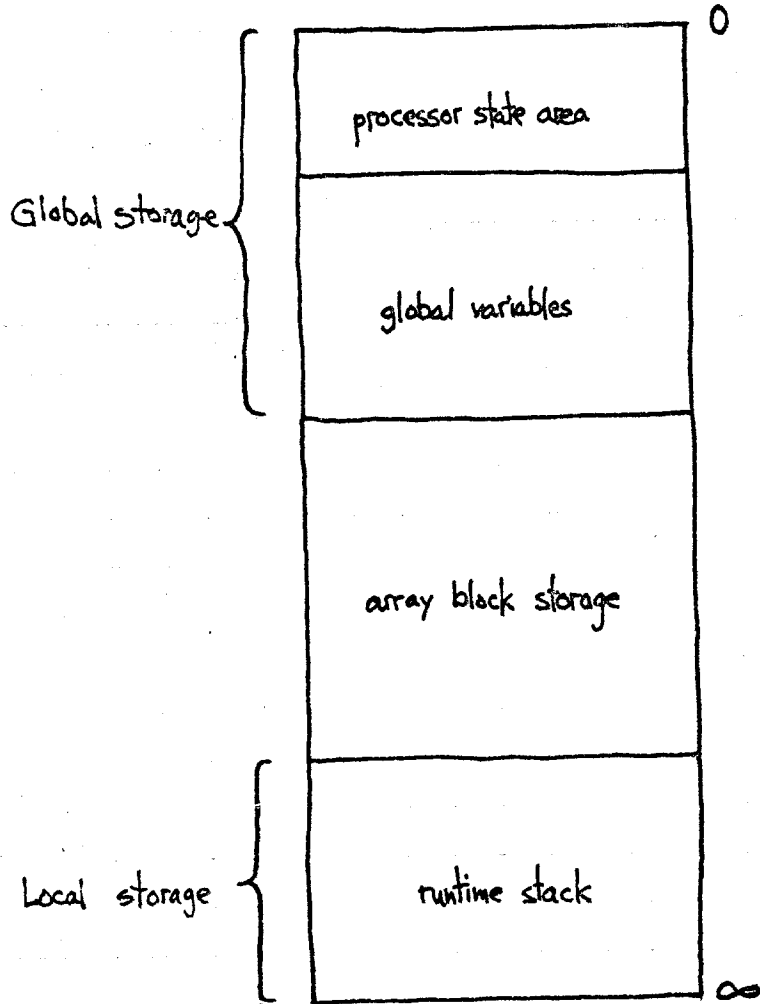 0
processor state area
Global storage
global variables
array block storage
Local storage
runtime stack
∞